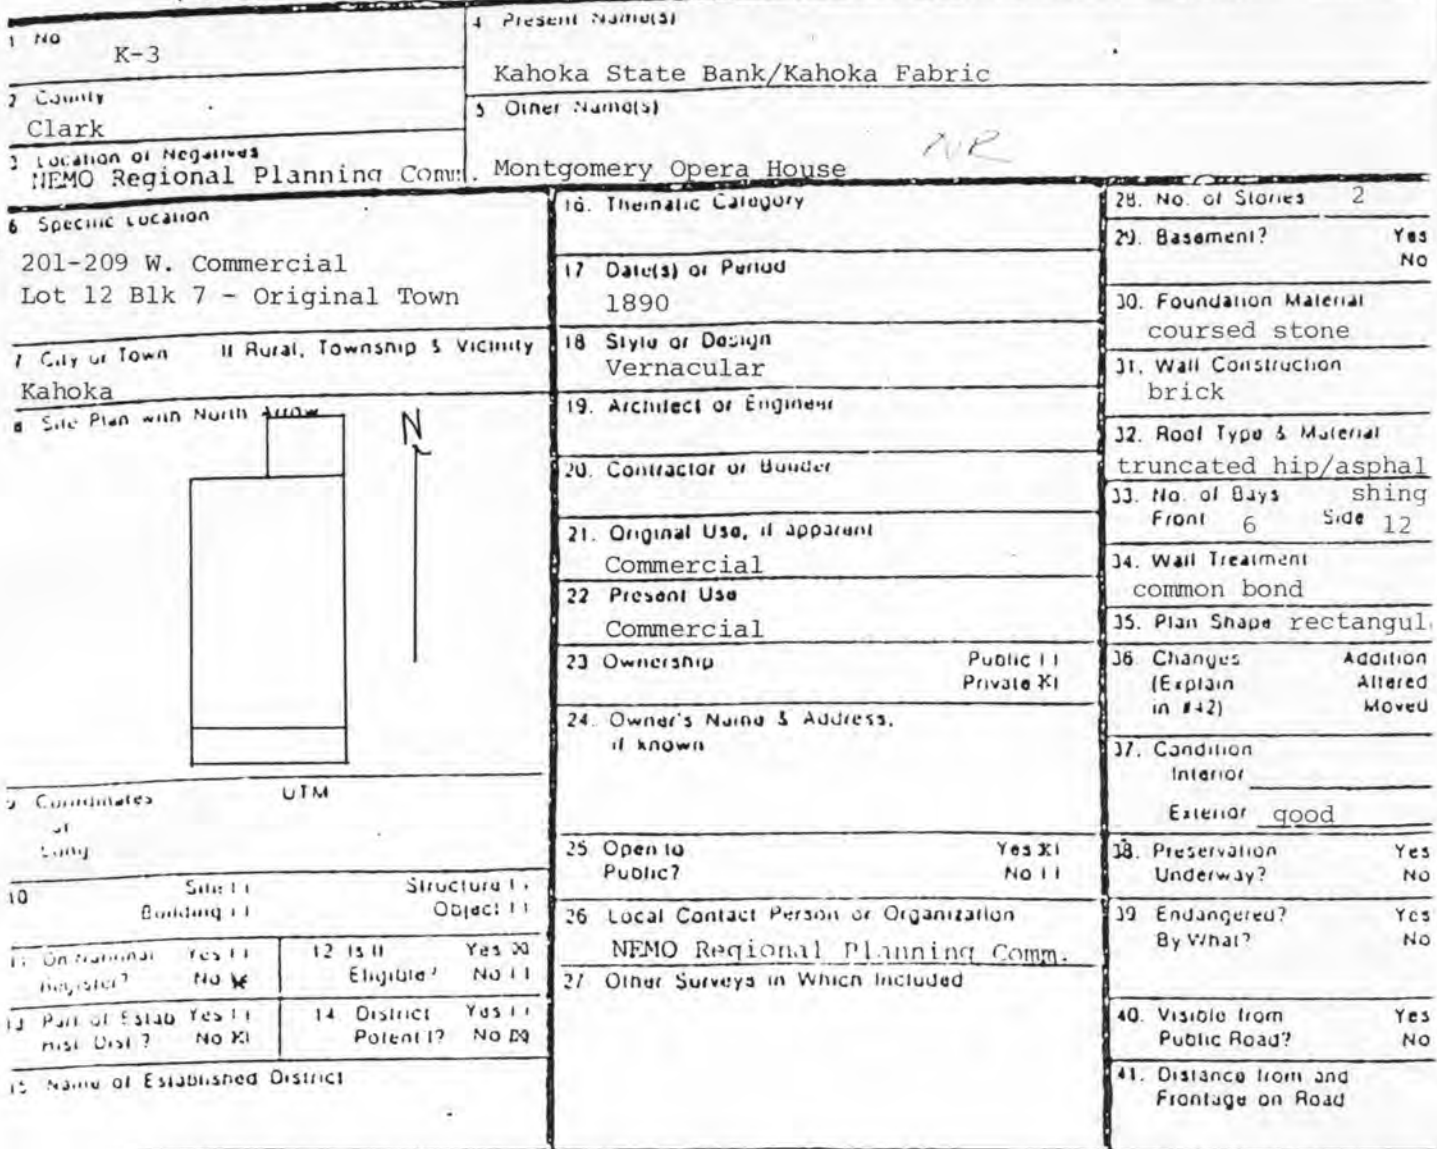 1 No
K-3
2 County
Clark
3 Location of Negatives
NEMO Regional Planning Comm.
4 Present Name(s)
Kahoka State Bank/Kahoka Fabric
5 Other Name(s)
NR
Montgomery Opera House
6 Specific Location
201-209 W. Commercial
Lot 12 Blk 7 - Original Town
7 City or Town If Rural, Township & Vicinity
Kahoka
8 Site Plan with North Arrow
N
9 Coordinates UTM
Long
10 Site Structure
Building Object
11 On National Yes
Register? No
12 Is It Yes X
Eligible? No
13 Part of Estab Yes
Hist. Dist.? No X
14. District Yes
Potent'l? No X
15 Name of Established District
16. Thematic Category
17 Date(s) or Period
1890
18 Style or Design
Vernacular
19. Architect or Engineer
20. Contractor or Builder
21. Original Use, if apparent
Commercial
22 Present Use
Commercial
23 Ownership Public
Private X
24. Owner's Name & Address,
if known
25 Open to Yes X
Public? No
26 Local Contact Person or Organization
NEMO Regional Planning Comm.
27 Other Surveys in Which Included
28. No. of Stories 2
29. Basement? Yes
No
30. Foundation Material
coursed stone
31. Wall Construction
brick
32. Roof Type & Material
truncated hip/asphal
shing
33. No. of Bays
Front 6 Side 12
34. Wall Treatment
common bond
35. Plan Shape rectangul
36. Changes Addition
(Explain Altered
in #42) Moved
37. Condition
Interior
Exterior good
38. Preservation Yes
Underway? No
39. Endangered? Yes
By What? No
40. Visible from Yes
Public Road? No
41. Distance from and
Frontage on Road